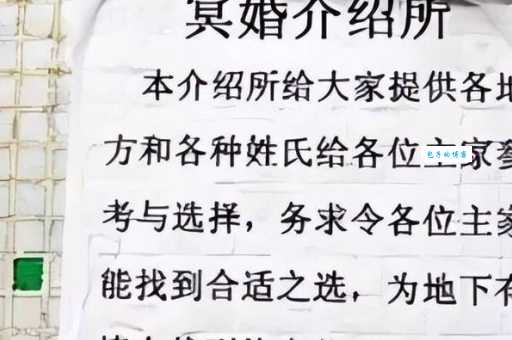 冥婚介绍所
本介绍所给大家提供各地
方和各种姓氏给各位主家参
考与选择，务求令各位主家
能找到合适之选，为地下有